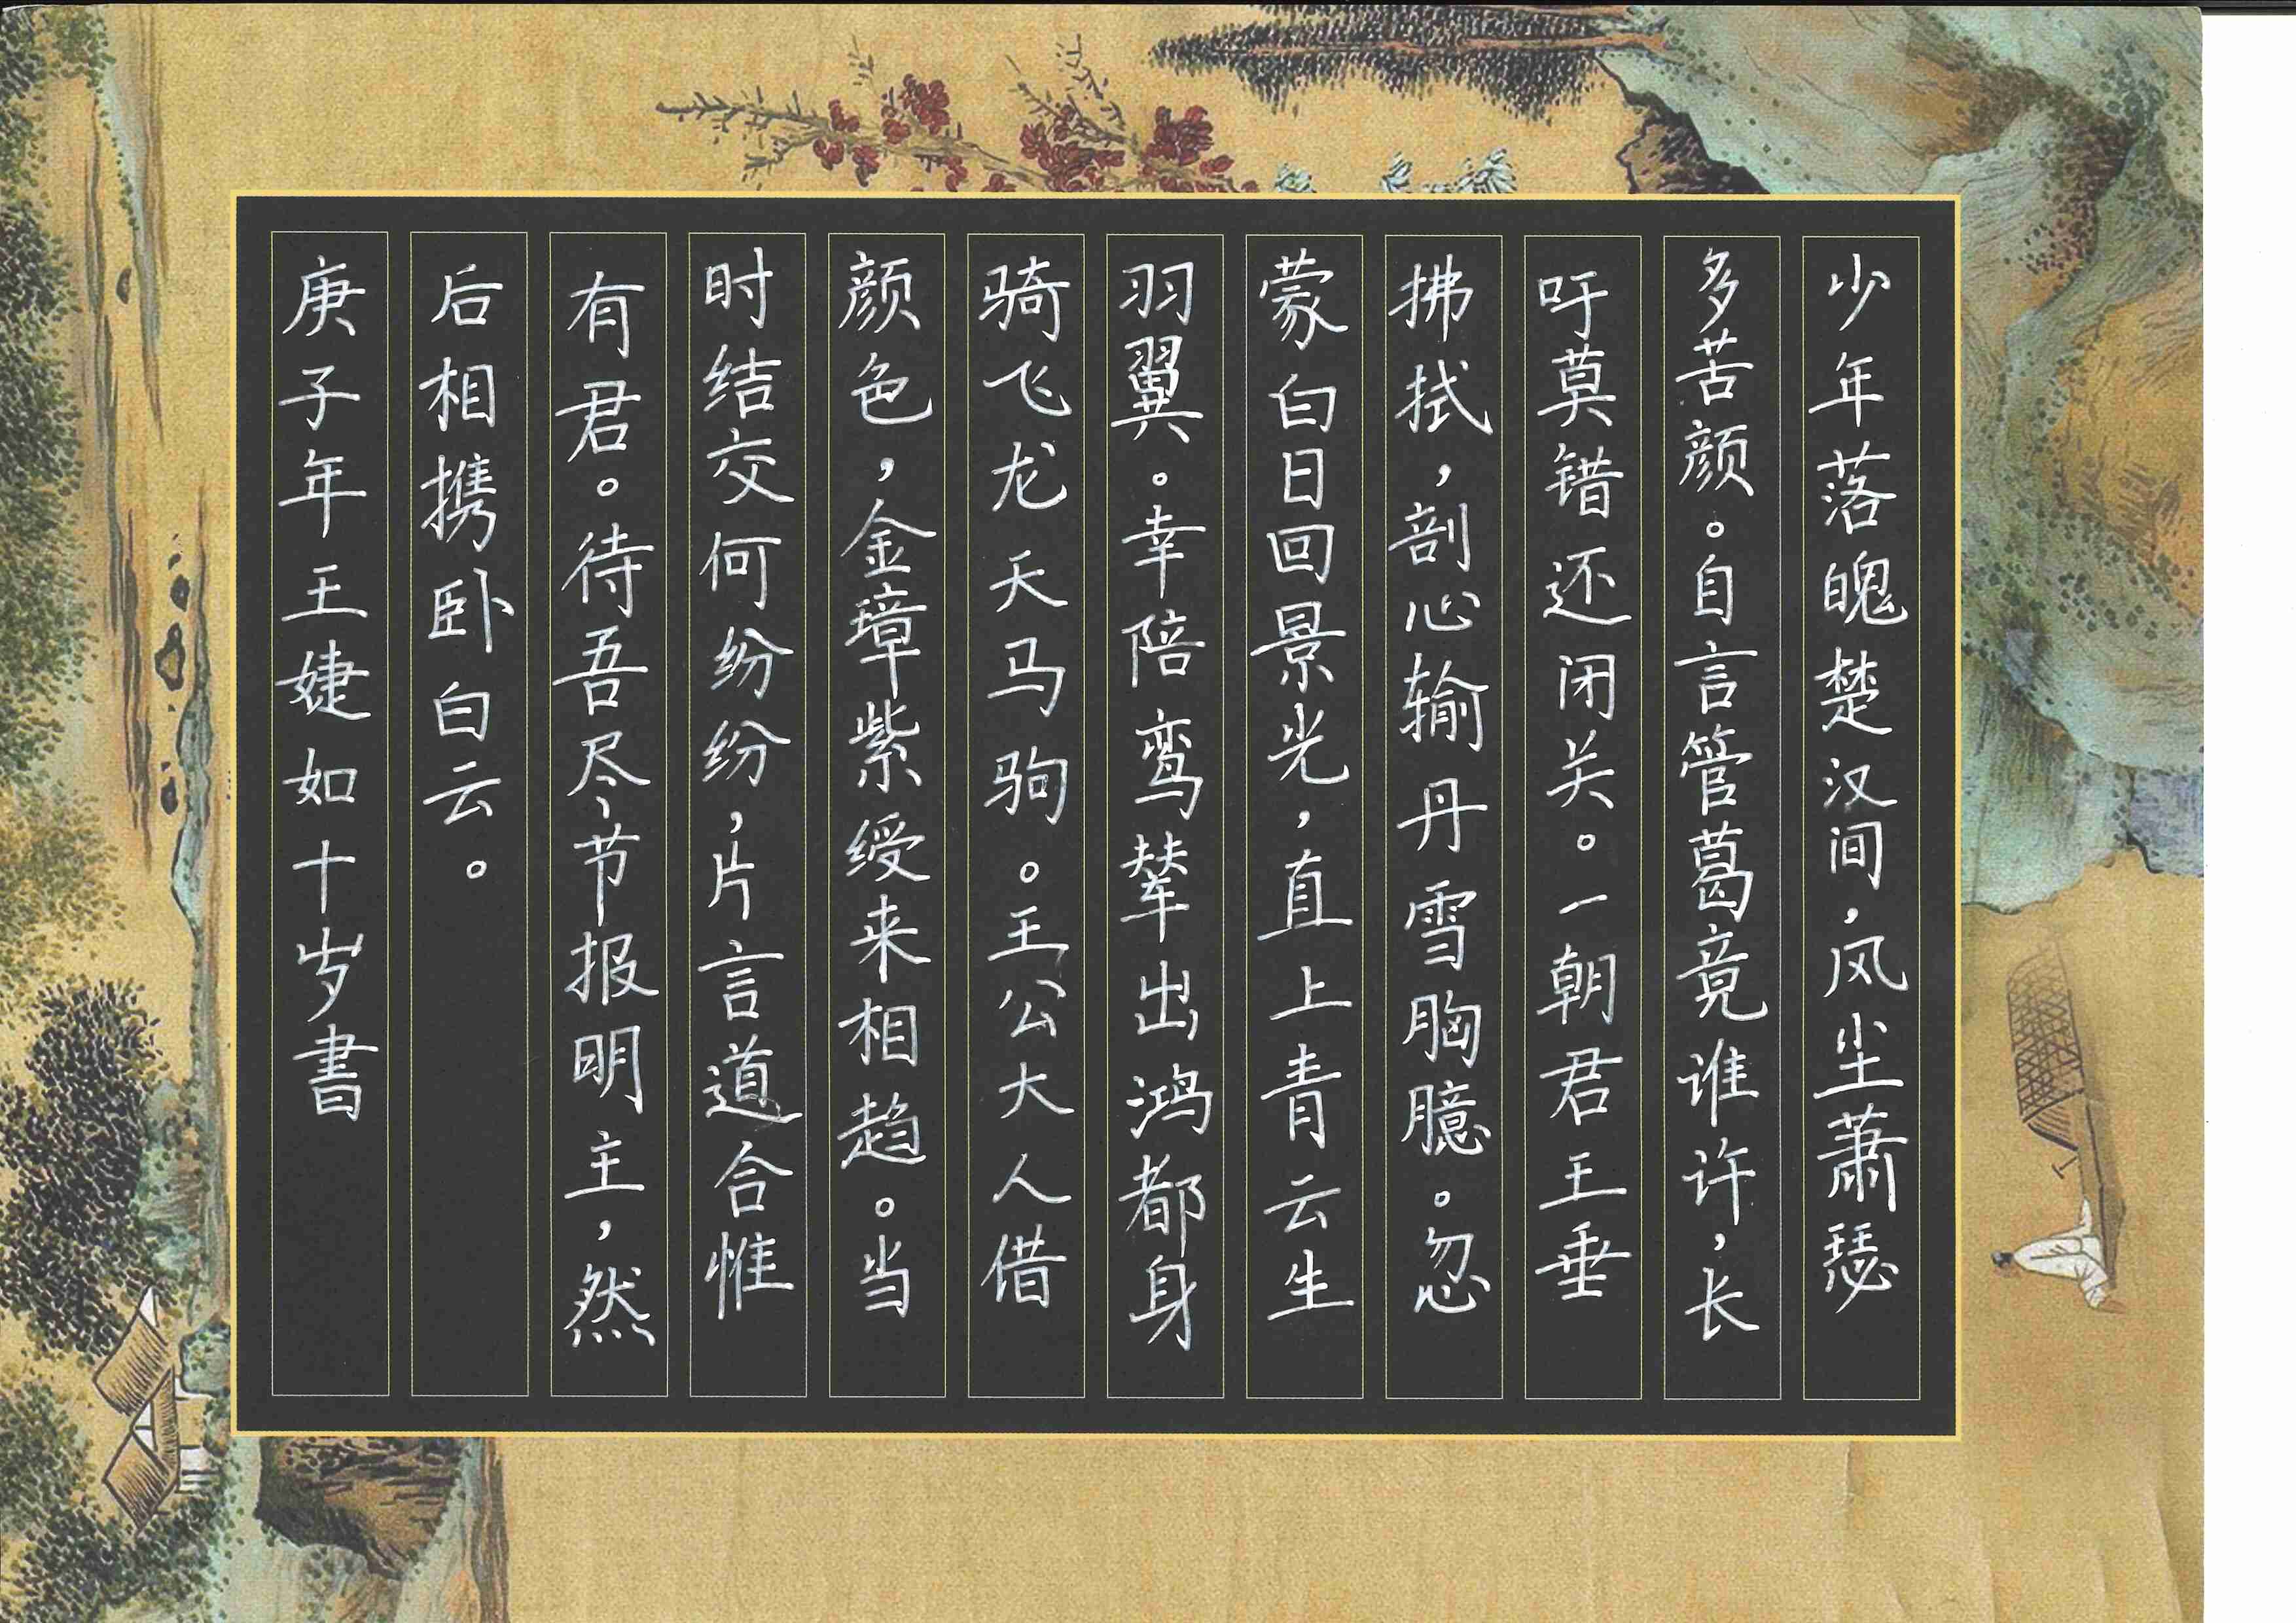 少年落魄楚汉间，风尘萧瑟
多苦颜。自言管葛竟谁许，长
吁莫错还闭关。一朝君王垂
拂拭，剖心输丹雪胸臆。忽
蒙白日回景光，直上青云生
羽翼。幸陪鸾辇出鸿都身
骑飞龙天马驹。王公大人借
颜色，金璋紫绶来相趋。当
时结交何纷纷，片言道合惟
有君。待吾尽，节报明主，然
后相携卧白云。
庚子年王婕如十岁書